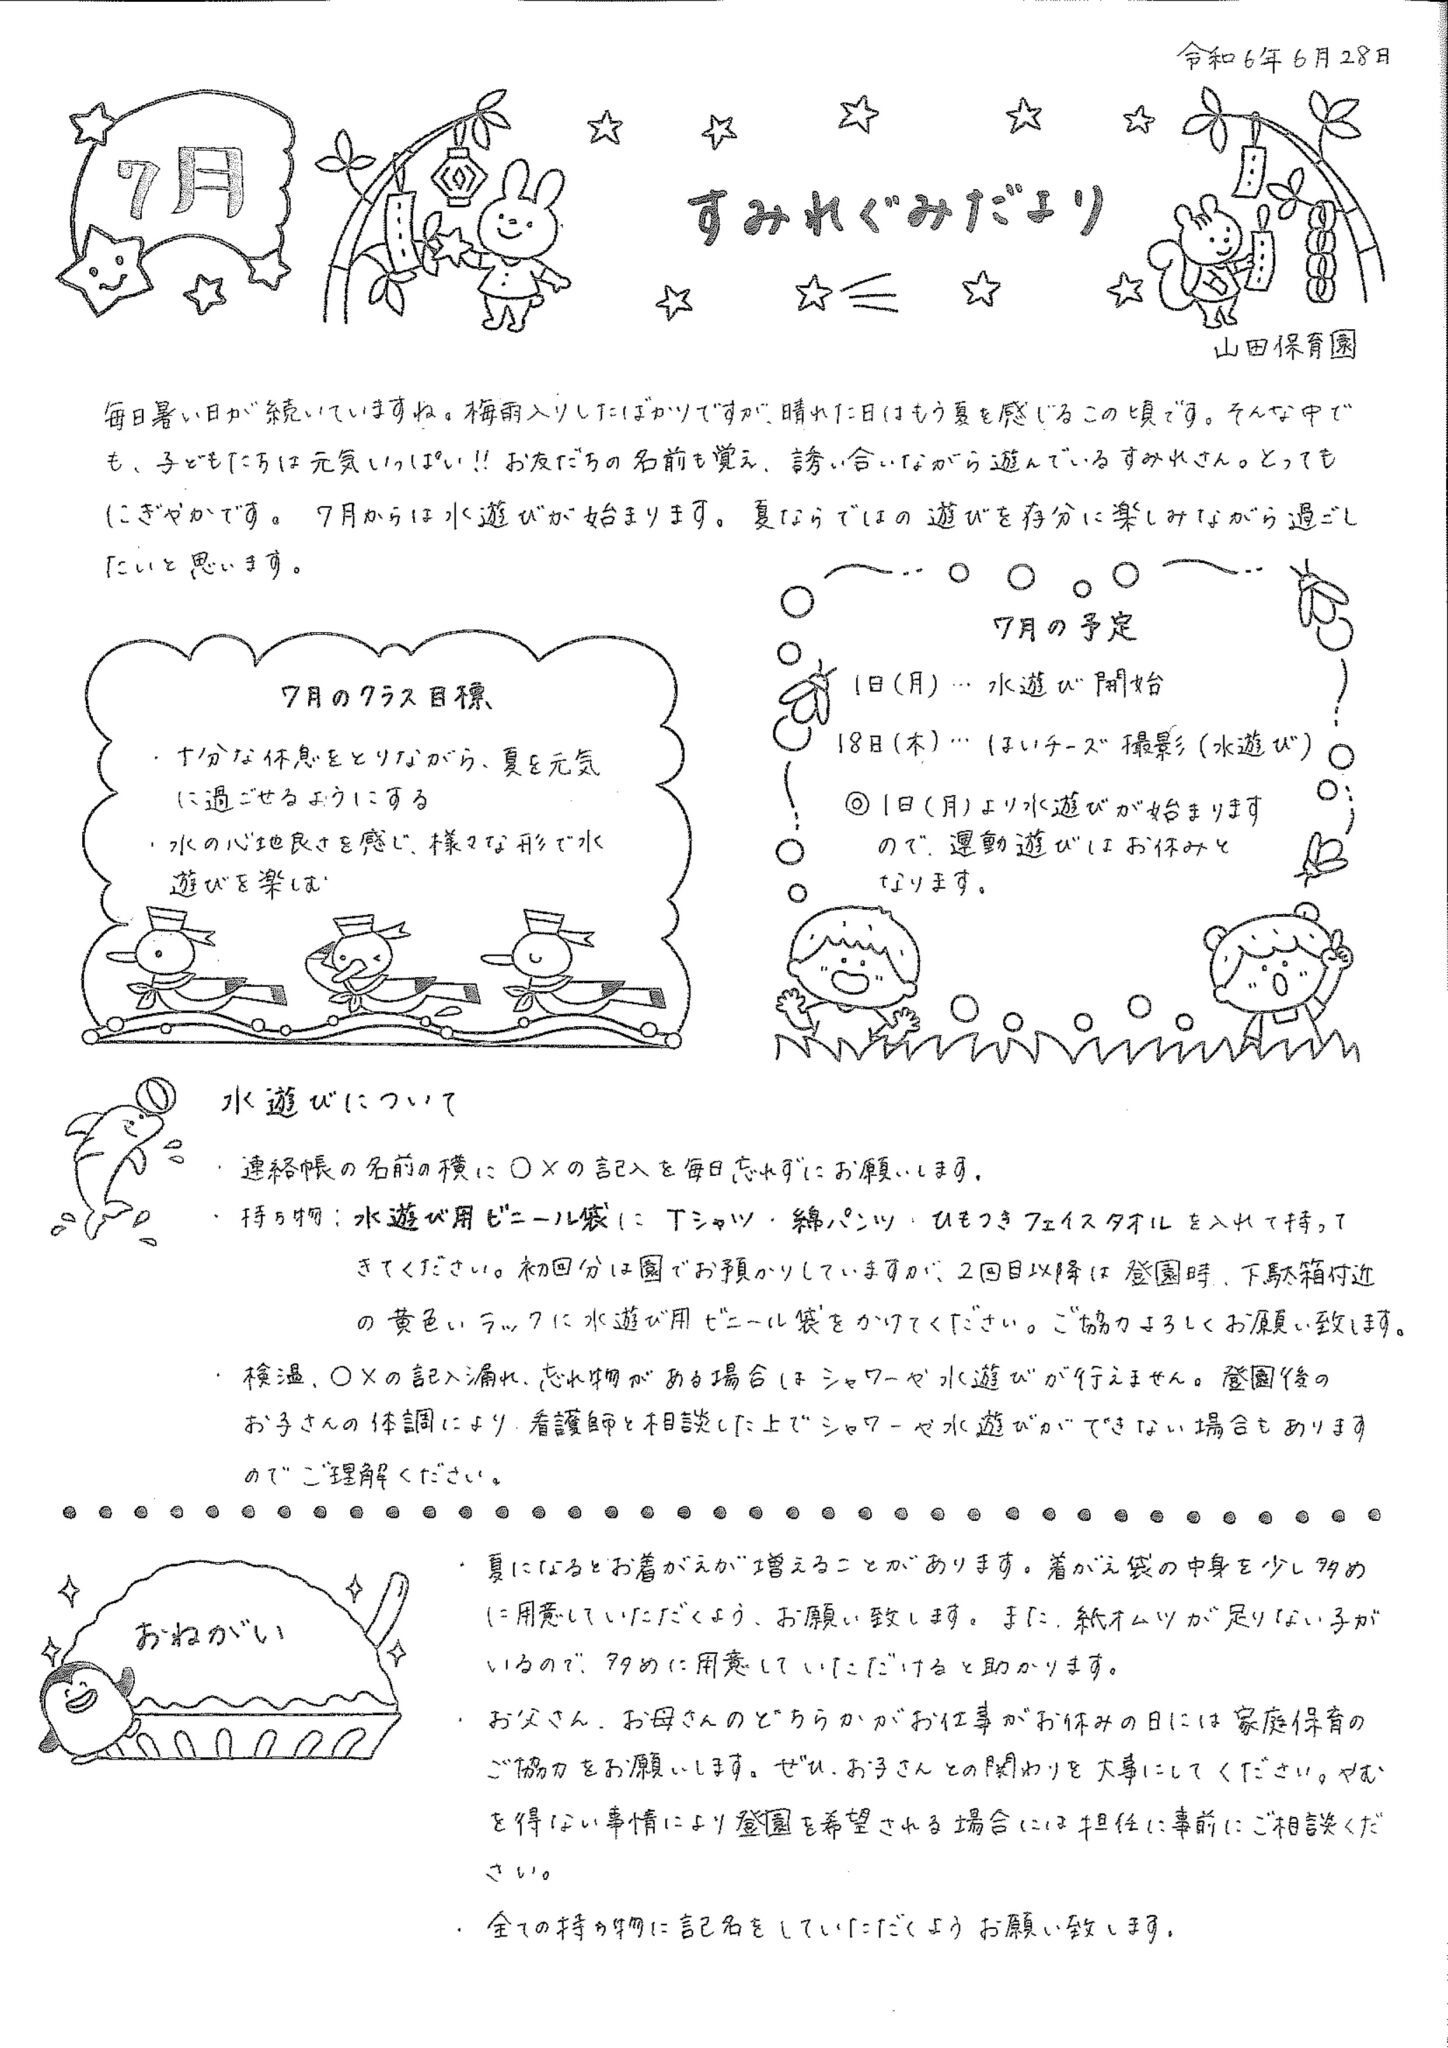 令和6年6月28日
7月
すみれぐみだより
山田保育園
毎日暑い日が続いていますね。梅雨入りしたばかりですが、晴れた日はもう夏を感じるこの頃です。そんな中で
も、子どもたちは元気いっぱい!! お友だちの名前も覚え、誘い合いながら遊んでいるすみれさん。とっても
にぎやかです。 7月からは水遊びが始まります。夏ならではの遊びを存分に楽しみながら過ごし
たいと思います。
7月のクラス目標
・十分な休息をとりながら、夏を元気
に過ごせるようにする
・水の心地良さを感じ、様々な形で水
遊びを楽しむ
7月の予定
1日(月)… 水遊び開始
18日(木)… はいチーズ撮影(水遊び)
◎1日(月)より水遊びが始まります
ので、運動遊びはお休みと
なります。
水遊びについて
・連絡帳の名前の横に〇×の記入を毎日忘れずにお願いします。
・持ち物:水遊び用ビニール袋にTシャツ・綿パンツ・ひもつきフェイスタオルを入れて持って
きてください。初回分は園でお預かりしていますが、2回目以降は登園時、下駄箱付近
の黄色いラックに水遊び用ビニール袋をかけてください。ご協力よろしくお願い致します。
・検温、〇×の記入漏れ、忘れ物がある場合はシャワーや水遊びが行えません。登園後の
お子さんの体調により、看護師と相談した上でシャワーや水遊びができない場合もあります
のでご理解ください。
おねがい
・夏になるとお着がえが増えることがあります。着がえ袋の中身を少し多め
に用意していただくよう、お願い致します。また、紙オムツが足りない子が
いるので、多めに用意していただけると助かります。
・お父さん、お母さんのどちらかがお仕事がお休みの日には家庭保育の
ご協力をお願いします。ぜひ、お子さんとの関わりを大事にしてください。やむ
を得ない事情により登園を希望される場合には担任に事前にご相談くだ
さい。
・全ての持ち物に記名をしていただくようお願い致します。